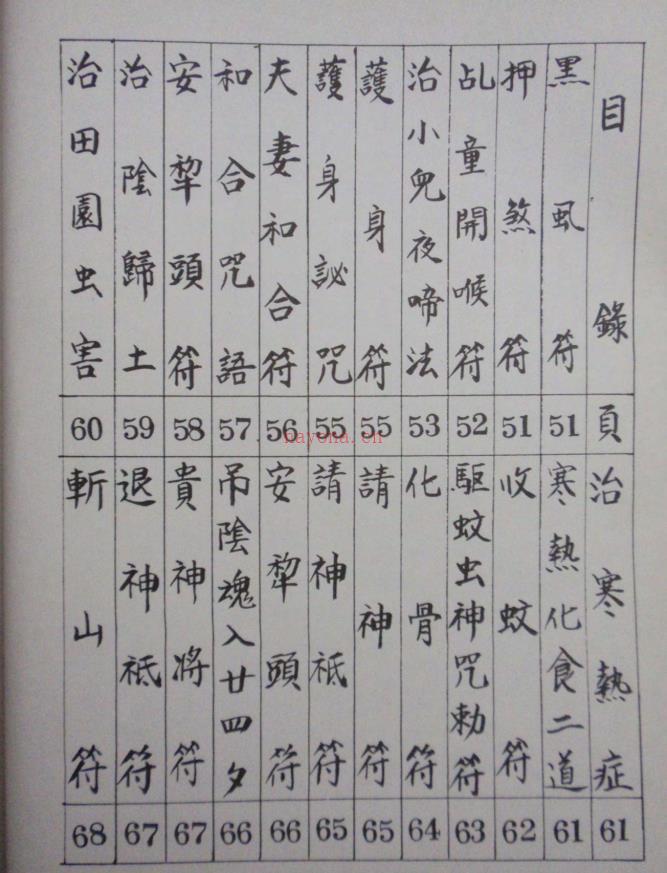 目錄 頁
黑虱符 51
押煞符 51
乩童開喉符 52
治小兒夜啼法 53
護身符 55
護身訣咒 55
夫妻和合符 56
和合咒語 57
安犂頭符 58
治陰歸土 59
治田園虫害 60
治寒熱症 61
寒熱化食二道 61
收蚊符 62
驅蚊虫神咒勅符 63
化骨符 64
請神符 65
請神祇符 65
安犂頭符 66
吊陰魂入廿四夕 66
貴神將符 67
退神祇符 67
斬山符 68
nayona.cn